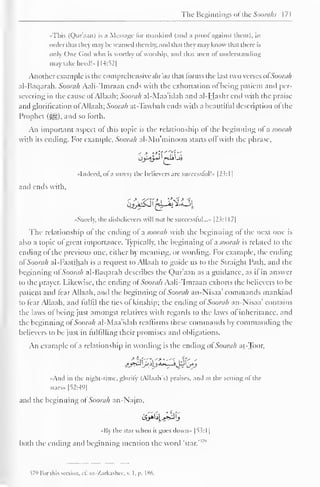 The Beginnings of the Soorahs 171
«This (Qur'aan) is a Message for mankind (and a proof against them), in
order that they may be warned thereby, and that they may know that there is
only One God who is worthy of worship, and that men of understanding
may take heed!» [14:52]
Another example is the comprehensive du'aa that forms the last two verses of Soorah
al-Baqarah. Soorah Aali-'Imraan ends with the exhortation of being patient and per-
severing in the cause of Allaah; Soorah al-Maa'idah and al-Hashr end with the praise
and glorification of Allaah; Soorah at-Tawbah ends with a beautiful description of the
Prophet (ﷺ), and so forth.
An important aspect of this topic is the relationship of the beginning of a soorah
with its ending. For example, Soorah al-Mu'minoon starts off with the phrase,
قَدْ أَفْلَحَ الْمُؤْمِنُونَ
«Indeed, of a surety the believers are successful!» [23:1]
and ends with,
إِنَّهُ لَا يُفْلِحُ الْكَافِرُونَ
«Surely, the disbelievers will not be successful...» [23:117]
The relationship of the ending of a soorah with the beginning of the next one is
also a topic of great importance. Typically, the beginning of a soorah is related to the
ending of the previous one, either by meaning, or wording. For example, the ending
of Soorah al-Faatihah is a request to Allaah to guide us to the Straight Path, and the
beginning of Soorah al-Baqarah describes the Qur'aan as a guidance, as if in answer
to the prayer. Likewise, the ending of Soorah Aali-'Imraan exhorts the believers to be
patient and fear Allaah, and the beginning of Soorah an-Nisaa' commands mankind
to fear Allaah, and fulfil the ties of kinship; the ending of Soorah an-Nisaa' contains
the laws of being just amongst relatives with regards to the laws of inheritance, and
the beginning of Soorah al-Maa'idah reaffirms these commands by commanding the
believers to be just in fulfilling their promises and obligations.
An example of a relationship in wording is the ending of Soorah at-Toor,
وَمِنَ اللَّيْلِ فَسَبِّحْهُ وَإِدْبَارَ النُّجُومِ
«And in the night-time, glorify (Allaah's) praises, and at the setting of the
stars» [52:49]
and the beginning of Soorah an-Najm,
وَالنَّجْمِ إِذَا هَوَىٰ
«By the star when it goes down» [53:1]
both the ending and beginning mention the word 'star.'379
379 For this section, cf. az-Zarkashee, v. 1, p. 186.